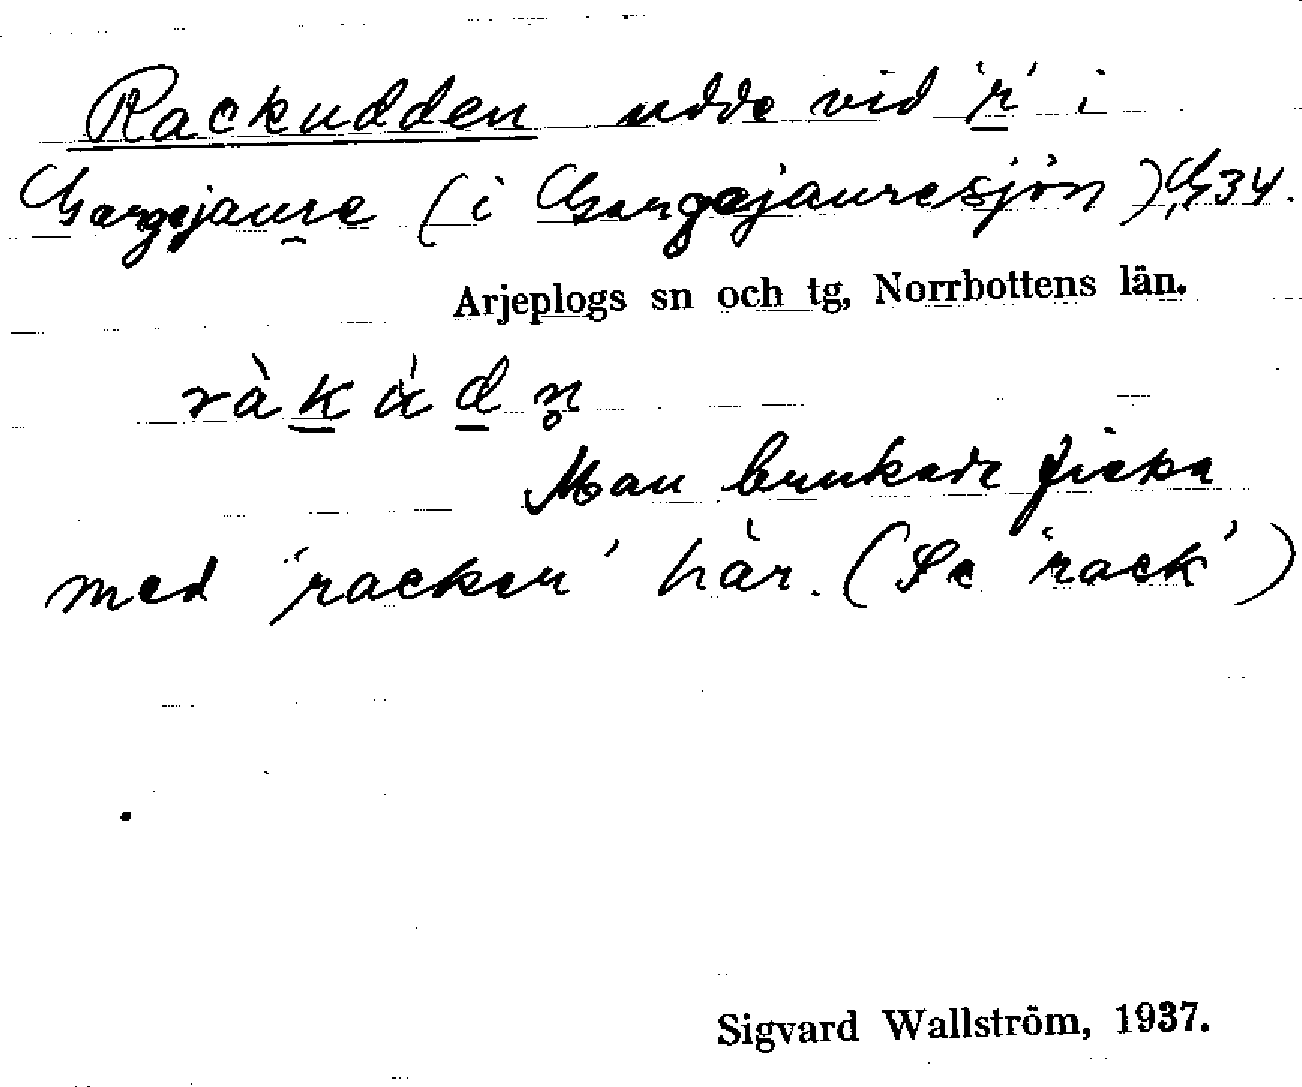 Rackudden udde vid 'r' i
Gargejaure (i Gargejauresjön) G34.
Arjeplogs sn och tg, Norrbottens län.
ràkúdn̥
Man brukade fiska
med 'racken' här. (Se 'rack')
Sigvard Wallström, 1937.